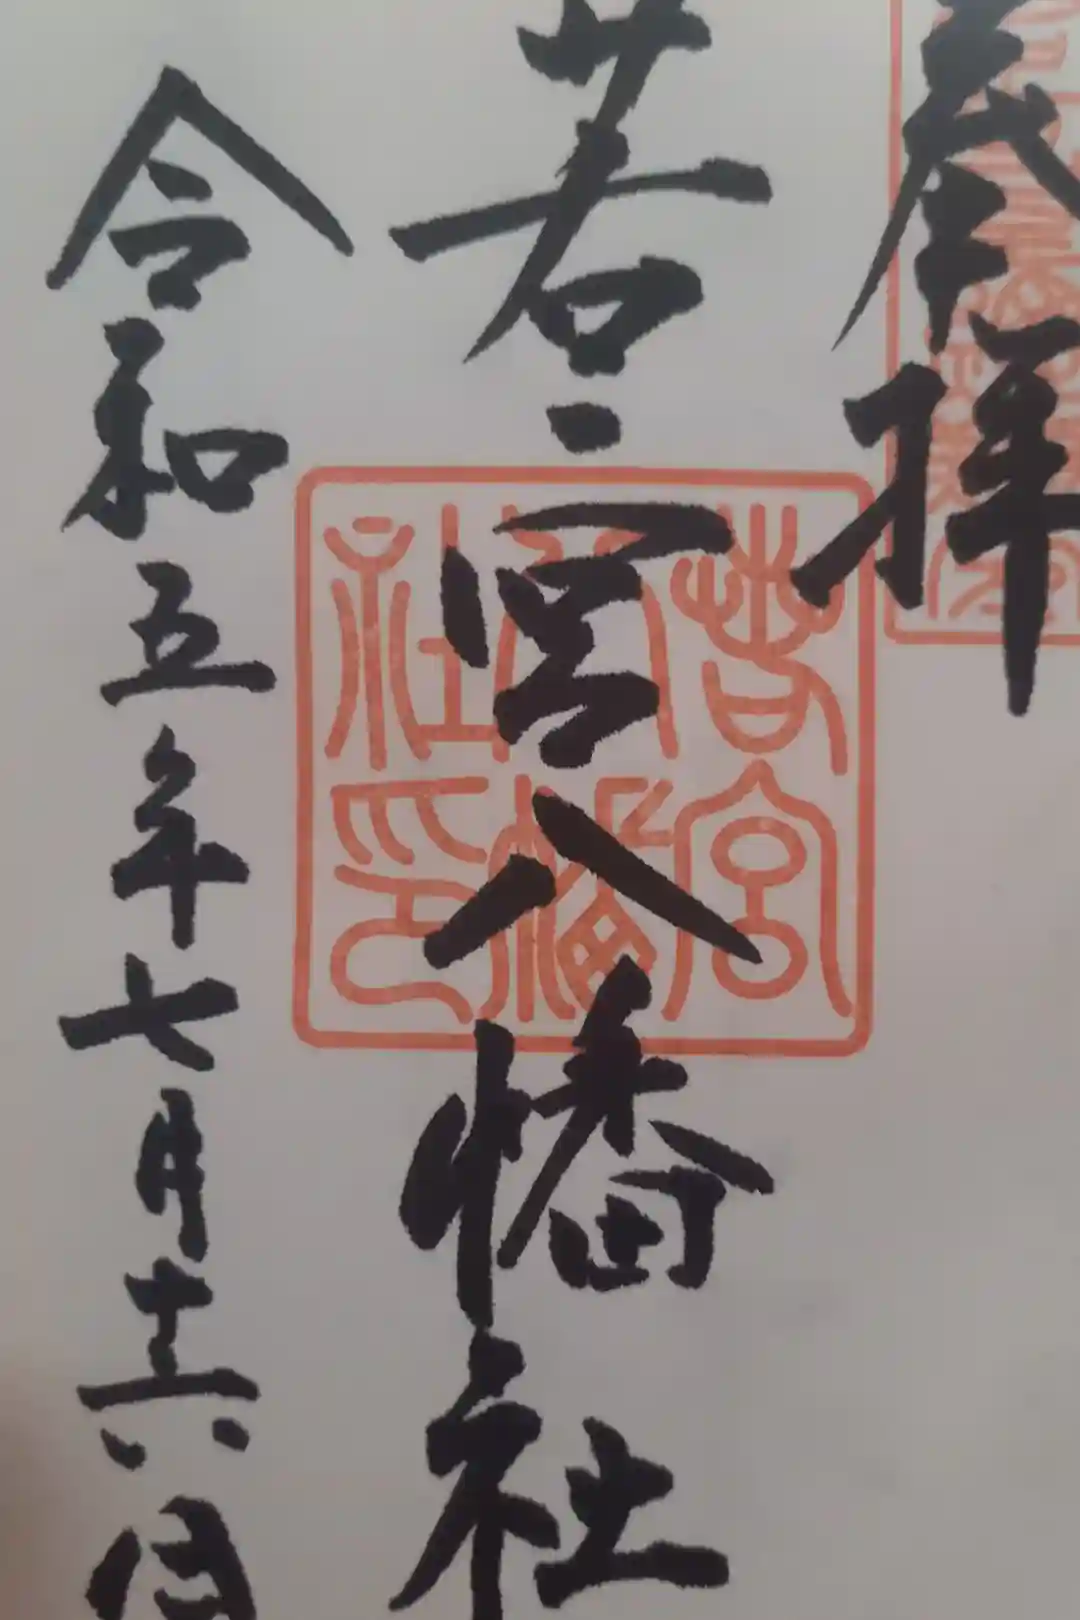 奉拝
若宮八幡社
令和五年七月十六日
若宮
八幡
社印